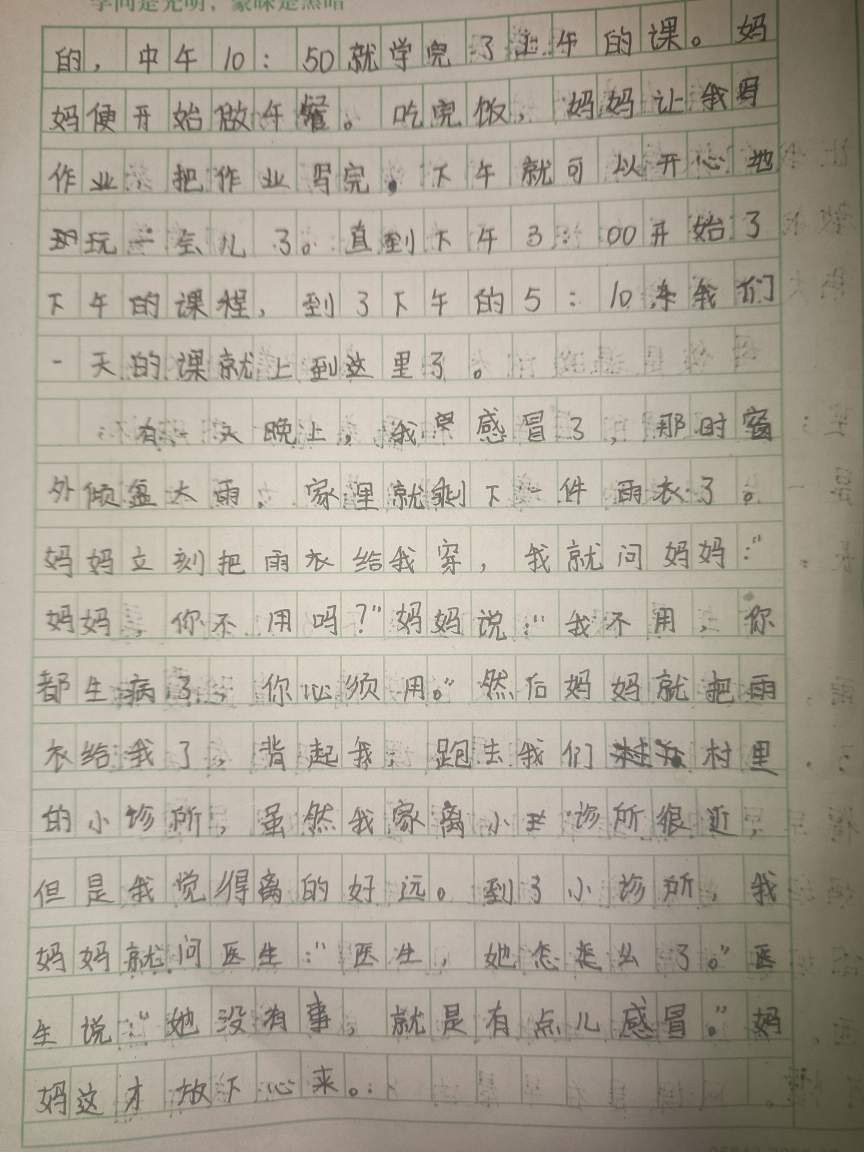 学问是光明，蒙昧是黑暗
的，中午10：50就学完了上午的课。妈
妈便开始做午餐。吃完饭，妈妈让我写
作业，把作业写完。下午就可以开心地
玩一会儿了。直到下午3：00开始了
下午的课程，到了下午的5：10，我们
一天的课就上到这里了。
有一天晚上，我感冒了，那时窗
外倾盆大雨，家里就剩下一件雨衣了。
妈妈立刻把雨衣给我穿，我就问妈妈：“
妈妈，你不用吗？”妈妈说：“我不用，你
都生病了，你心须用。”然后妈妈就把雨
衣给我了，背起我，跑去我们村里
的小诊所，虽然我家离小诊所很近，
但是我觉得离的好远。到了小诊所，我
妈妈就问医生：“医生，她怎么了。”医
生说：“她没有事，就是有点儿感冒。”妈
妈这才放下心来。